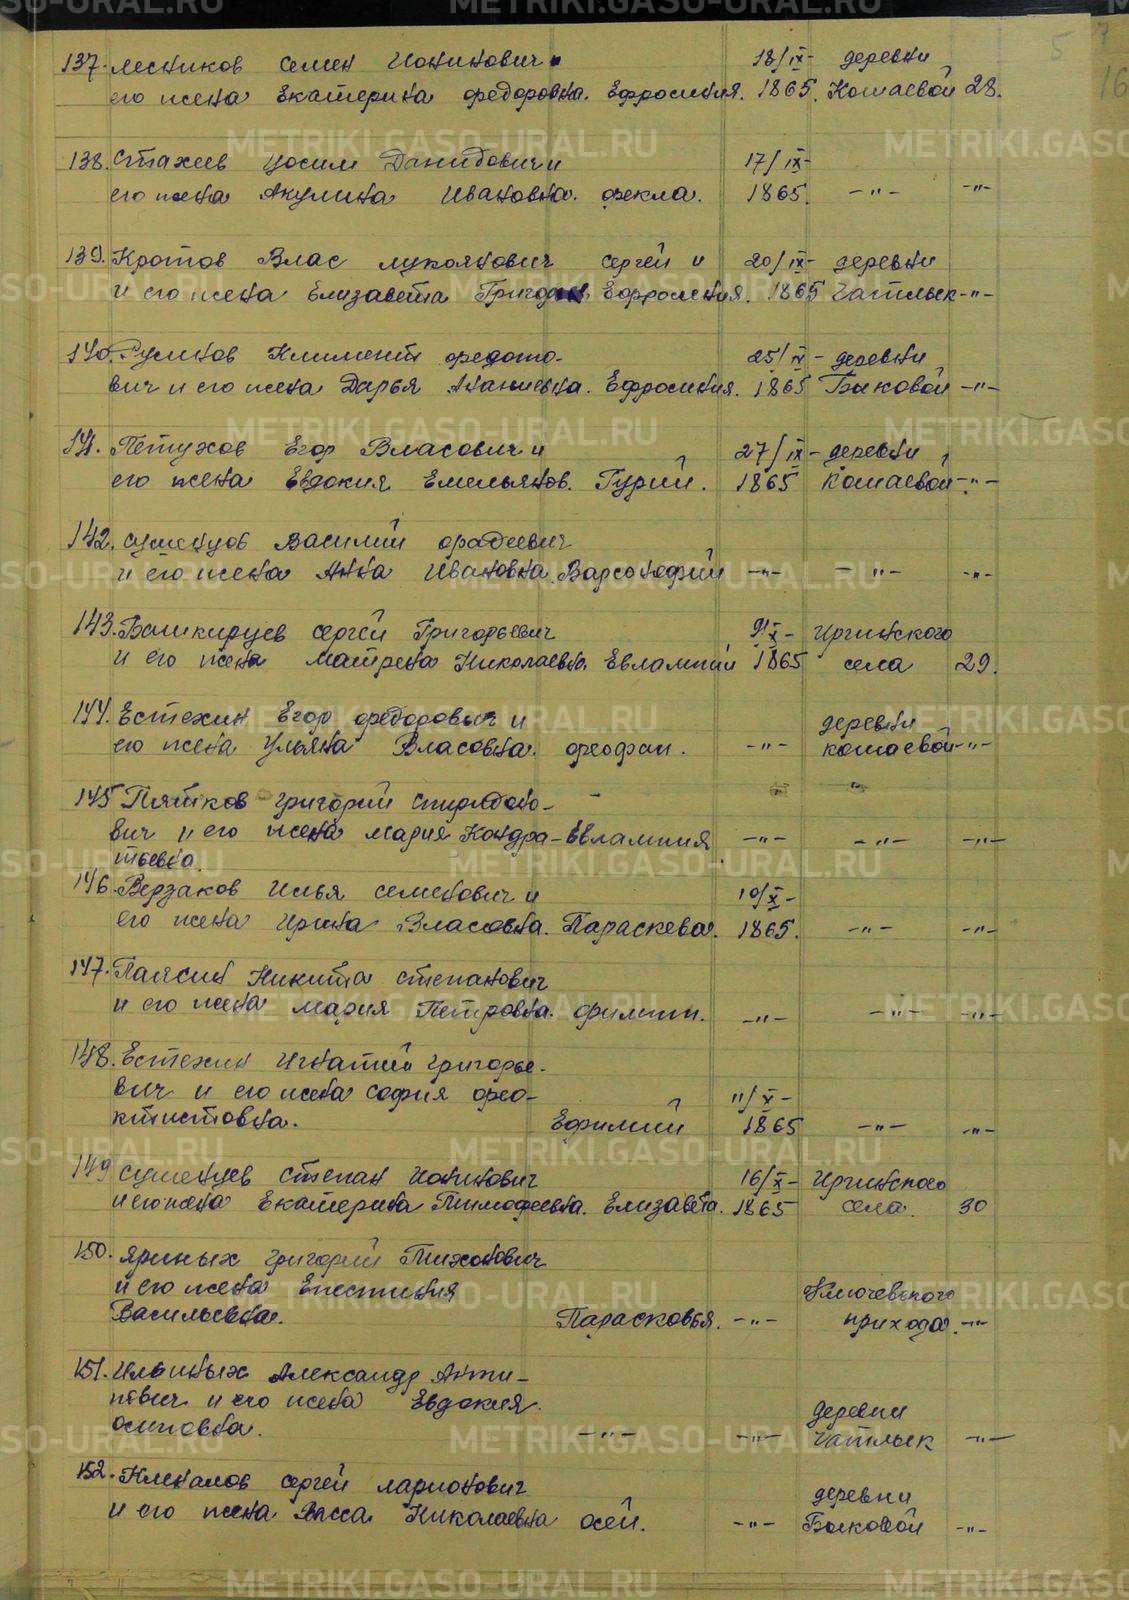 137. Лесников Семен Ионинович и 18/IX- деревни
его жена Екатерина Федоровна. Ефросиния. 1865. Кошаевой 28.
138. Стахеев Зосим Данидович и 17/IX-
его жена Акулина Ивановна. Фекла. 1865. -"- -"-
139. Кротов Влас Лукоянович Сергей и 20/IX- деревни
и его жена Елизавета Григор Ефросиния. 1865 Чатлык -"-
140. Климент Федото- 25/IX- деревни
вич и его жена Дарья Ананьевна. Ефросиния. 1865 Быковой -"-
141. Петухов Егор Власович и 27/IX- деревни
его жена Евдокия Емельянов. Гурий. 1865 Кошаевой -"-
142. Сушенцов Василий Фадеевич
и его жена Анна Ивановна. Варсонофий -"- -"- -"-
143. Башкирцев Сергей Григорьевич 9/X- Иргинского
и его жена Матрена Николаевна. Евлампий 1865 села 29.
144. Естехин Егор Федорович и деревни
его жена Ульяна Власовна. Феофан. -"- Кошаевой -"-
145 Пятков Григорий Спиридоно-
вич и его жена Мария Кондра- Евлампия. -"- -"- -"-
тьевна.
146. Верзаков Илья Семенович и 10/X-
его жена Ирина Власовна. Параскева. 1865. -"- -"-
147. Никита Степанович
и его жена Мария Петровна. Филипп. -"- -"- -"-
148. Естехин Игнатий Григорье-
вич и его жена София Фео- 11/X-
ктистовна. Ефимий 1865 -"- -"-
149 Сушенцев Степан Ионинович 16/X- Иргинского
и его жена Екатерина Тимофеевна. Елизавета. 1865 села. 30
150. Яриных Григорий Тихонович
и его жена Епистиния Ключевского
Васильевна. Парасковья. -"- прихода. -"-
151. Ильиных Александр Анти-
пович и его жена Евдокия деревни
Осиповна. -"- -"- Чатлык -"-
152. Клепалов Сергей Ларионович деревни
и его жена Васса Николаевна Осей. -"- Быковой -"-
METRIKI.GASO-URAL.RU